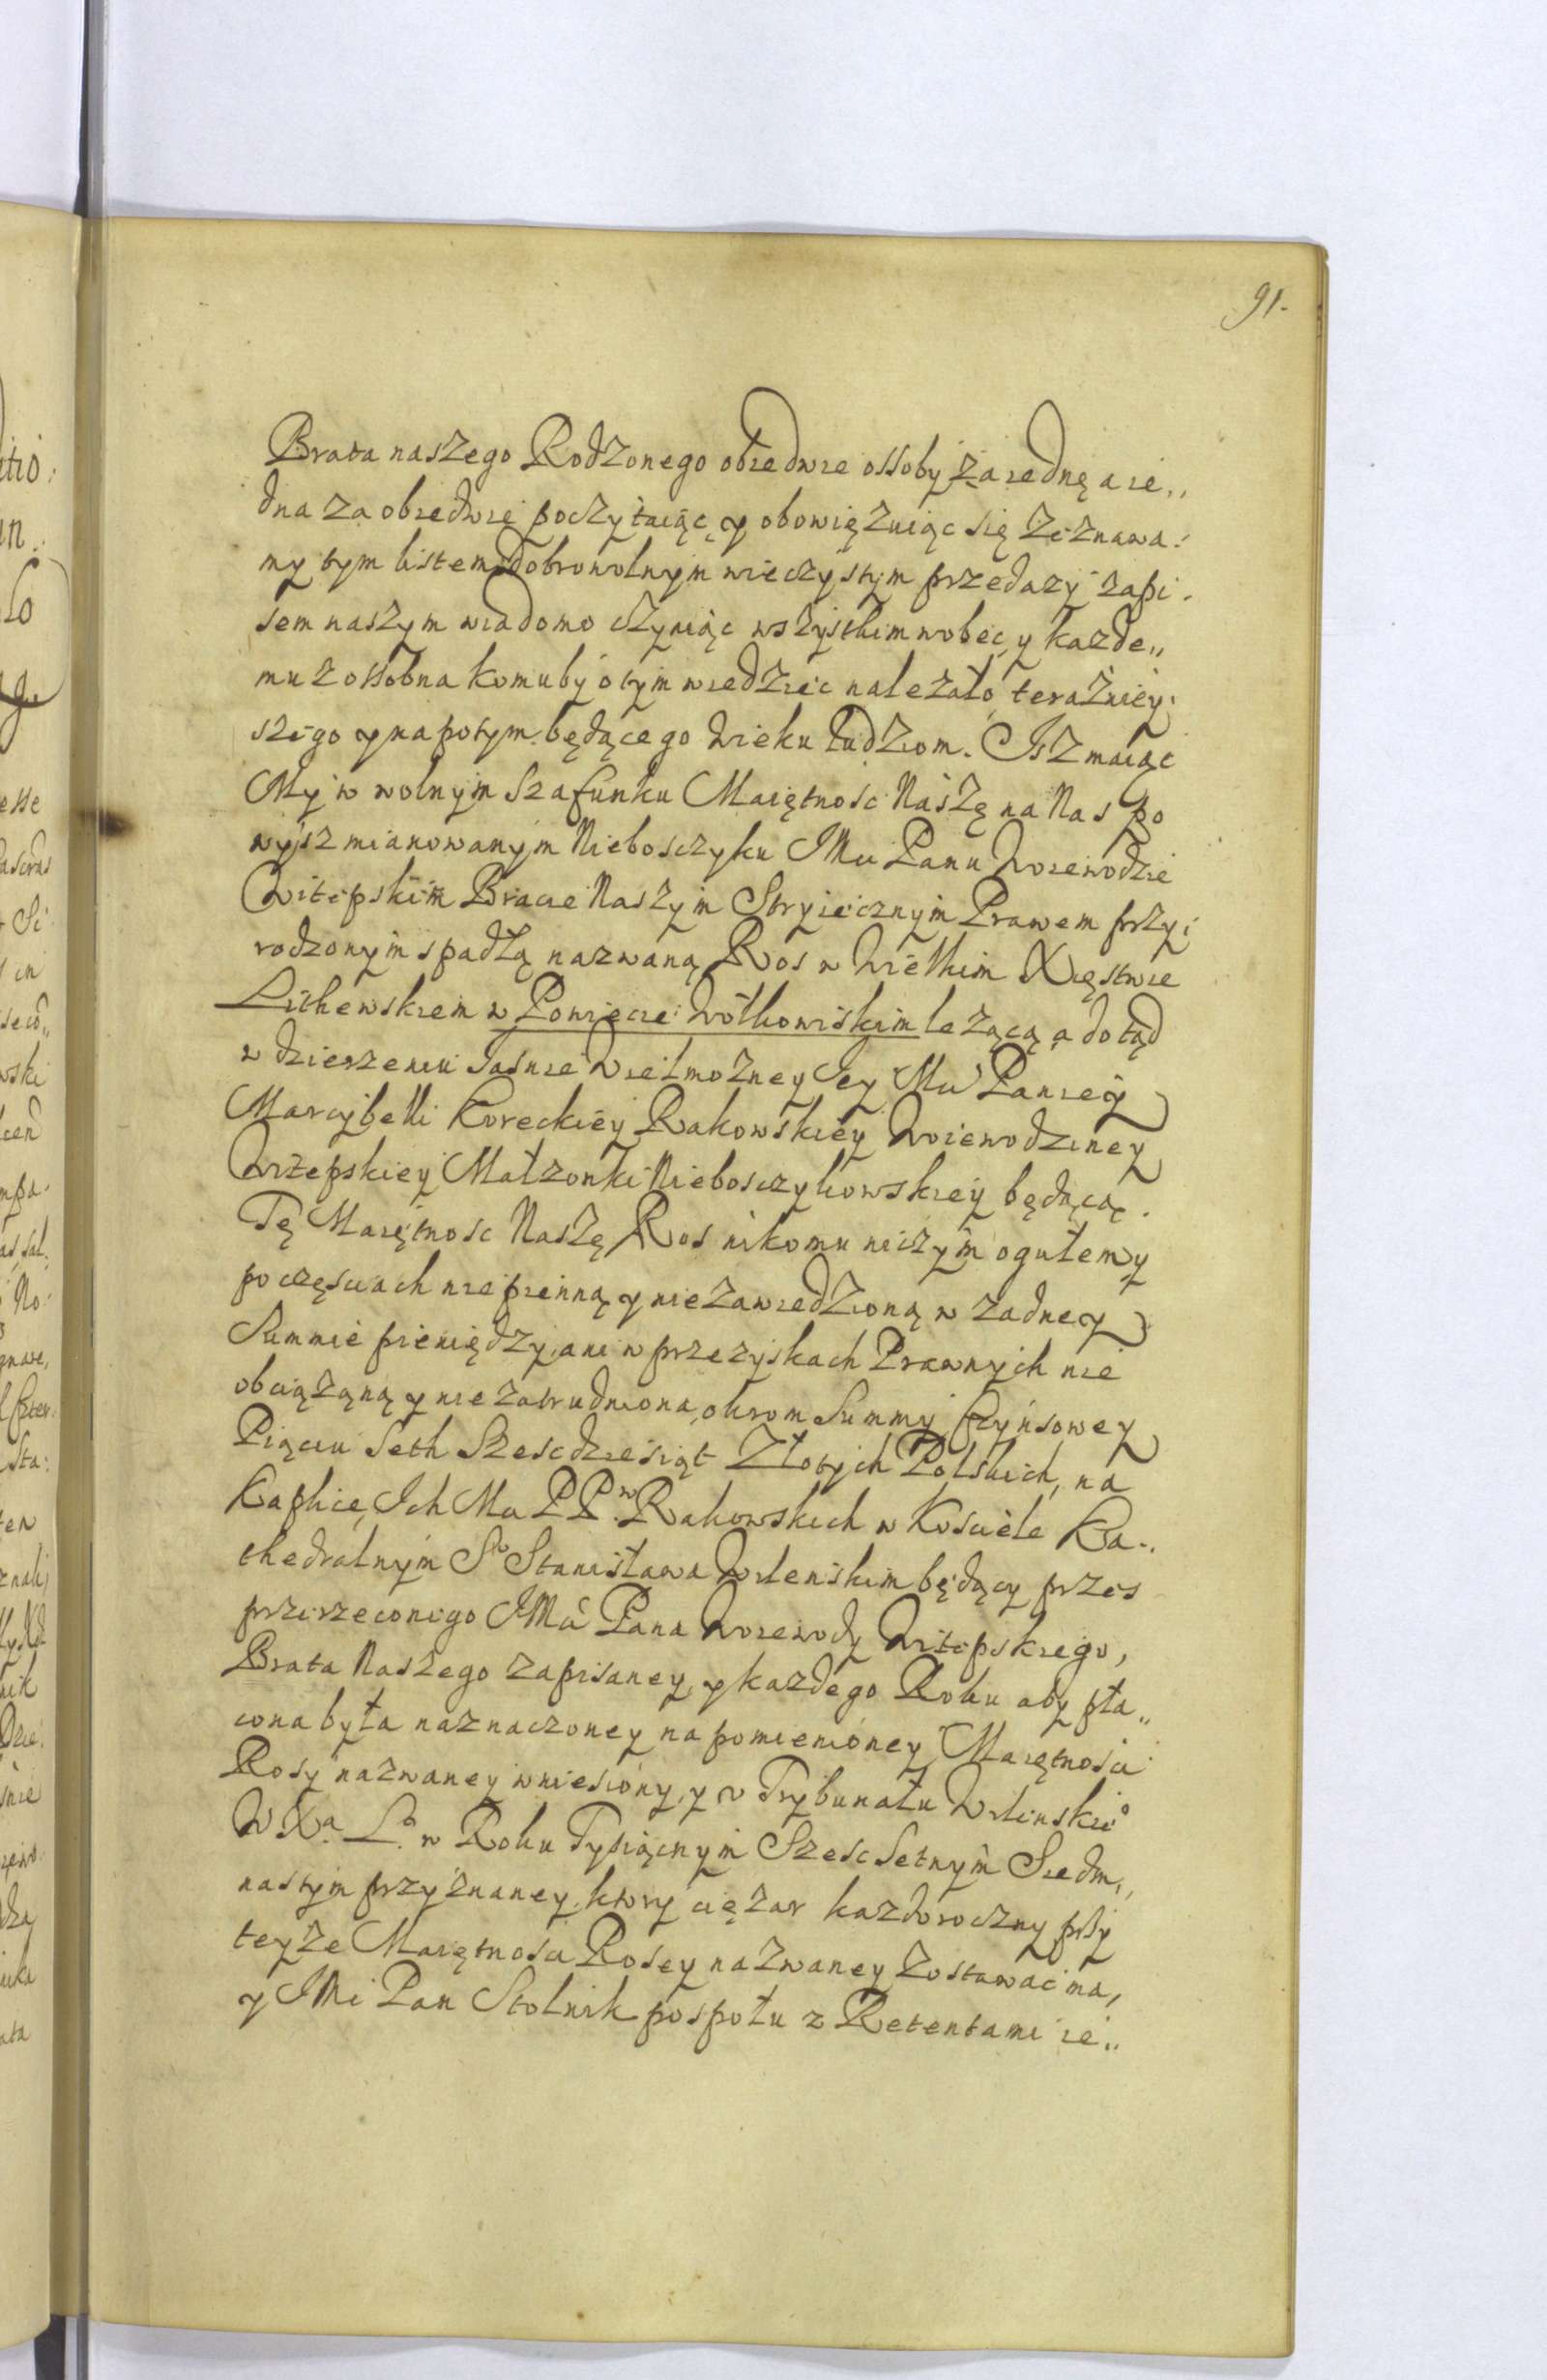 91.
Brata naszego Rodzonego obiedwie ossoby za iednę a ie„
dna za obiedwie poczytaiąc y obowięzuiąc się zeznawa:
my tym listem dobrowolnym wieczystym przedazy zapi.
sem naszym wiadomo czyniąc wszystkim wobec y kazde„
mu z ossobna komuby o tym wiedziec nalezało, teraźniey:
szego y napotym będącego Wieku Ludziom. Isz maiąc
My w wolnym Szafunku Maiętnosc Naszę na Nas po
wysz mianowanym Nieboszczyku JMu Panu Woiewodzie
Witepskim Bracie Naszym Stryiecznym Prawem przy:
rodzonym spadłą nazwaną Ros w Wielkim Xięstwie
Lithewskiem w Powiecie Wołkowiskim lezącą, a dotąd
w dzierzeniu Jasnie Wielmozney Jey Mu Paniey
Marcybelli Koreckiey Rakowskiey Woiewodziney
Witepskiey Małzonki Nieboszczykowskiey będącą.
Tę Maiętnosc Naszę Ros nikomu niczym ogułem y
po częsciach nie pienną y nie zawiedzioną w zadney
Summie pieniędzy, ani w przezyskach Prawnych nie
obciązaną y nie zatrudnioną, okrom Summy Czynsowey
Pięciu Seth Szescdziesiąt Złotych Polskich, na
Kaplicę Ich Mu PP.w Rakowskich w Kosciele Ka„
thedralnym So Stanisława Wilenskim będący przes
przerzeconego JMu Pana Woiewody Witepskiego,
Brata Naszego zapisaney, y kazdego Roku aby pła„
cona była naznaczoney na pomienioney Maiętnosci
Rosy nazwaney wniesiony, y v Trybunału Wilenskio
W Xa Lo w Roku Tysiącnym Szescsetnym Siedm„
nastym przyznaney, ktory cięzar kazdoroczny przy
teyze Maiętnosci Rosey nazwaney zostawac ma,
y JMi Pan Stolnik pospołu z Retentami ie„